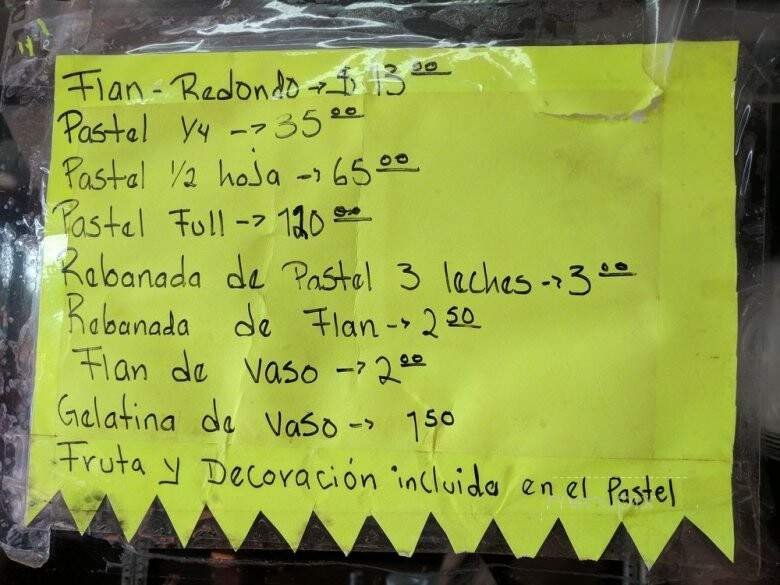 Flan - Redondo → $ 13 00
Pastel 1/4 → 35 00
Pastel 1/2 hoja → 65 00
Pastel Full → 120 00
Rebanada de Pastel 3 leches → 3 00
Rebanada de Flan → 2 50
Flan de vaso → 2 00
Gelatina de vaso → 1 50
Fruta y Decoración incluida en el Pastel